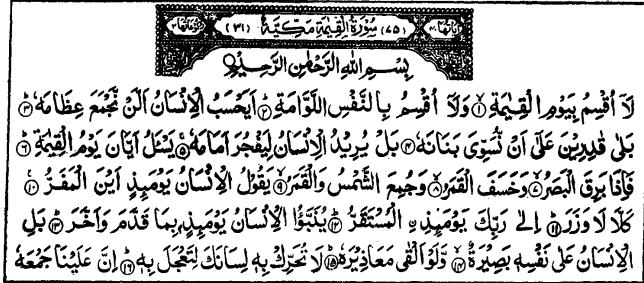 اٰیَاتُهَا ۴۰ (۷۵) سُوْرَةُ الْقِیٰمَةِ مَكِّیَّةٌ (۳۱) رُكُوْعَاتُهَا ۲
بِسْمِ اللّٰهِ الرَّحْمٰنِ الرَّحِیْمِ
لَاۤ اُقْسِمُ بِیَوْمِ الْقِیٰمَةِ ۱ وَلَاۤ اُقْسِمُ بِالنَّفْسِ اللَّوَّامَةِ ۲ اَیَحْسَبُ الْاِنْسَانُ اَلَّنْ نَّجْمَعَ عِظَامَهٗ ۳
بَلٰى قٰدِرِیْنَ عَلٰۤى اَنْ نُّسَوِّیَ بَنَانَهٗ ۴ بَلْ یُرِیْدُ الْاِنْسَانُ لِیَفْجُرَ اَمَامَهٗ ۵ یَسْئَلُ اَیَّانَ یَوْمُ الْقِیٰمَةِ ۶
فَاِذَا بَرِقَ الْبَصَرُ ۷ وَخَسَفَ الْقَمَرُ ۸ وَجُمِعَ الشَّمْسُ وَالْقَمَرُ ۹ یَقُوْلُ الْاِنْسَانُ یَوْمَئِذٍ اَیْنَ الْمَفَرُّ ۱۰
كَلَّا لَا وَزَرَ ۱۱ اِلٰى رَبِّكَ یَوْمَئِذِ ࣙالْمُسْتَقَرُّ ۱۲ یُنَبَّؤُا الْاِنْسَانُ یَوْمَئِذٍۭ بِمَا قَدَّمَ وَاَخَّرَ ۱۳ بَلِ
الْاِنْسَانُ عَلٰى نَفْسِهٖ بَصِیْرَةٌ ۱۴ وَّلَوْ اَلْقٰى مَعَاذِیْرَهٗ ۱۵ لَا تُحَرِّكْ بِهٖ لِسَانَكَ لِتَعْجَلَ بِهٖ ۱۶ اِنَّ عَلَیْنَا جَمْعَهٗ